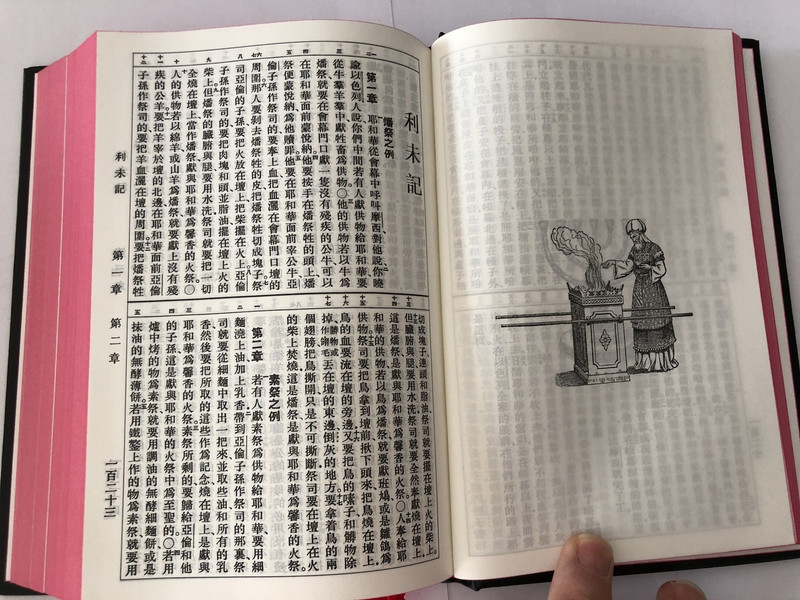 利未記
燔祭之例
第一章　耶和華從會幕中呼叫摩西對他說你曉
諭以色列人說你們中間若有人獻供物給耶和華要
從牛羣羊羣中獻牲畜爲供物○他的供物若以牛爲
燔祭就要在會幕門口獻一隻沒有殘疾的公牛可以
在耶和華面前蒙悅納他要按手在燔祭牲的頭上燔
祭便蒙悅納爲他贖罪他要在耶和華面前宰公牛亞
倫子孫作祭司的要奉上血把血灑在會幕門口壇的
周圍那人要剝去燔祭牲的皮把燔祭牲切成塊子祭
司亞倫的子孫要把火放在壇上把柴擺在火上亞倫
子孫作祭司的要把肉塊和頭並脂油擺在壇上火的
柴上但燔祭的臟腑與腿要用水洗祭司就要把一切
全燒在壇上當作燔祭獻與耶和華爲馨香的火祭○
人的供物若以綿羊或山羊爲燔祭就要獻上沒有殘
疾的公羊要把羊宰於壇的北邊在耶和華面前亞倫
子孫作祭司的要把羊血灑在壇的周圍要把燔祭牲
切成塊子連頭和脂油祭司就要擺在壇上火的柴上
但臟腑與腿要用水洗祭司就要全然奉獻燒在壇上
這是燔祭是獻與耶和華爲馨香的火祭○人奉給耶
和華的供物若以鳥爲燔祭就要獻班鳩或是雛鴿爲
供物祭司要把鳥拿到壇前揪下頭來把鳥燒在壇上
鳥的血要流在壇的旁邊又要把鳥的嗉子和髒物除
掉髒物或作翎毛丟在壇的東邊倒灰的地方要拿着鳥的兩
個翅膀把鳥撕開只是不可撕斷祭司要在壇上在火
的柴上焚燒這是燔祭是獻與耶和華爲馨香的火祭
素祭之例
第二章　若有人獻素祭爲供物給耶和華要用細
麵澆上油加上乳香帶到亞倫子孫作祭司的那裏祭
司就要從細麵中取出一把來並取些油和所有的乳
香然後要把所取的這些作爲記念燒在壇上是獻與
耶和華爲馨香的火祭素祭所剩的要歸給亞倫和他
的子孫這是獻與耶和華的火祭中爲至聖的○若用
爐中烤的物爲素祭就要用調油的無酵細麵餅或是
抹油的無酵薄餅若用鐵鏊上作的物爲素祭就要用
利未記　第一章　第二章　一百二十三